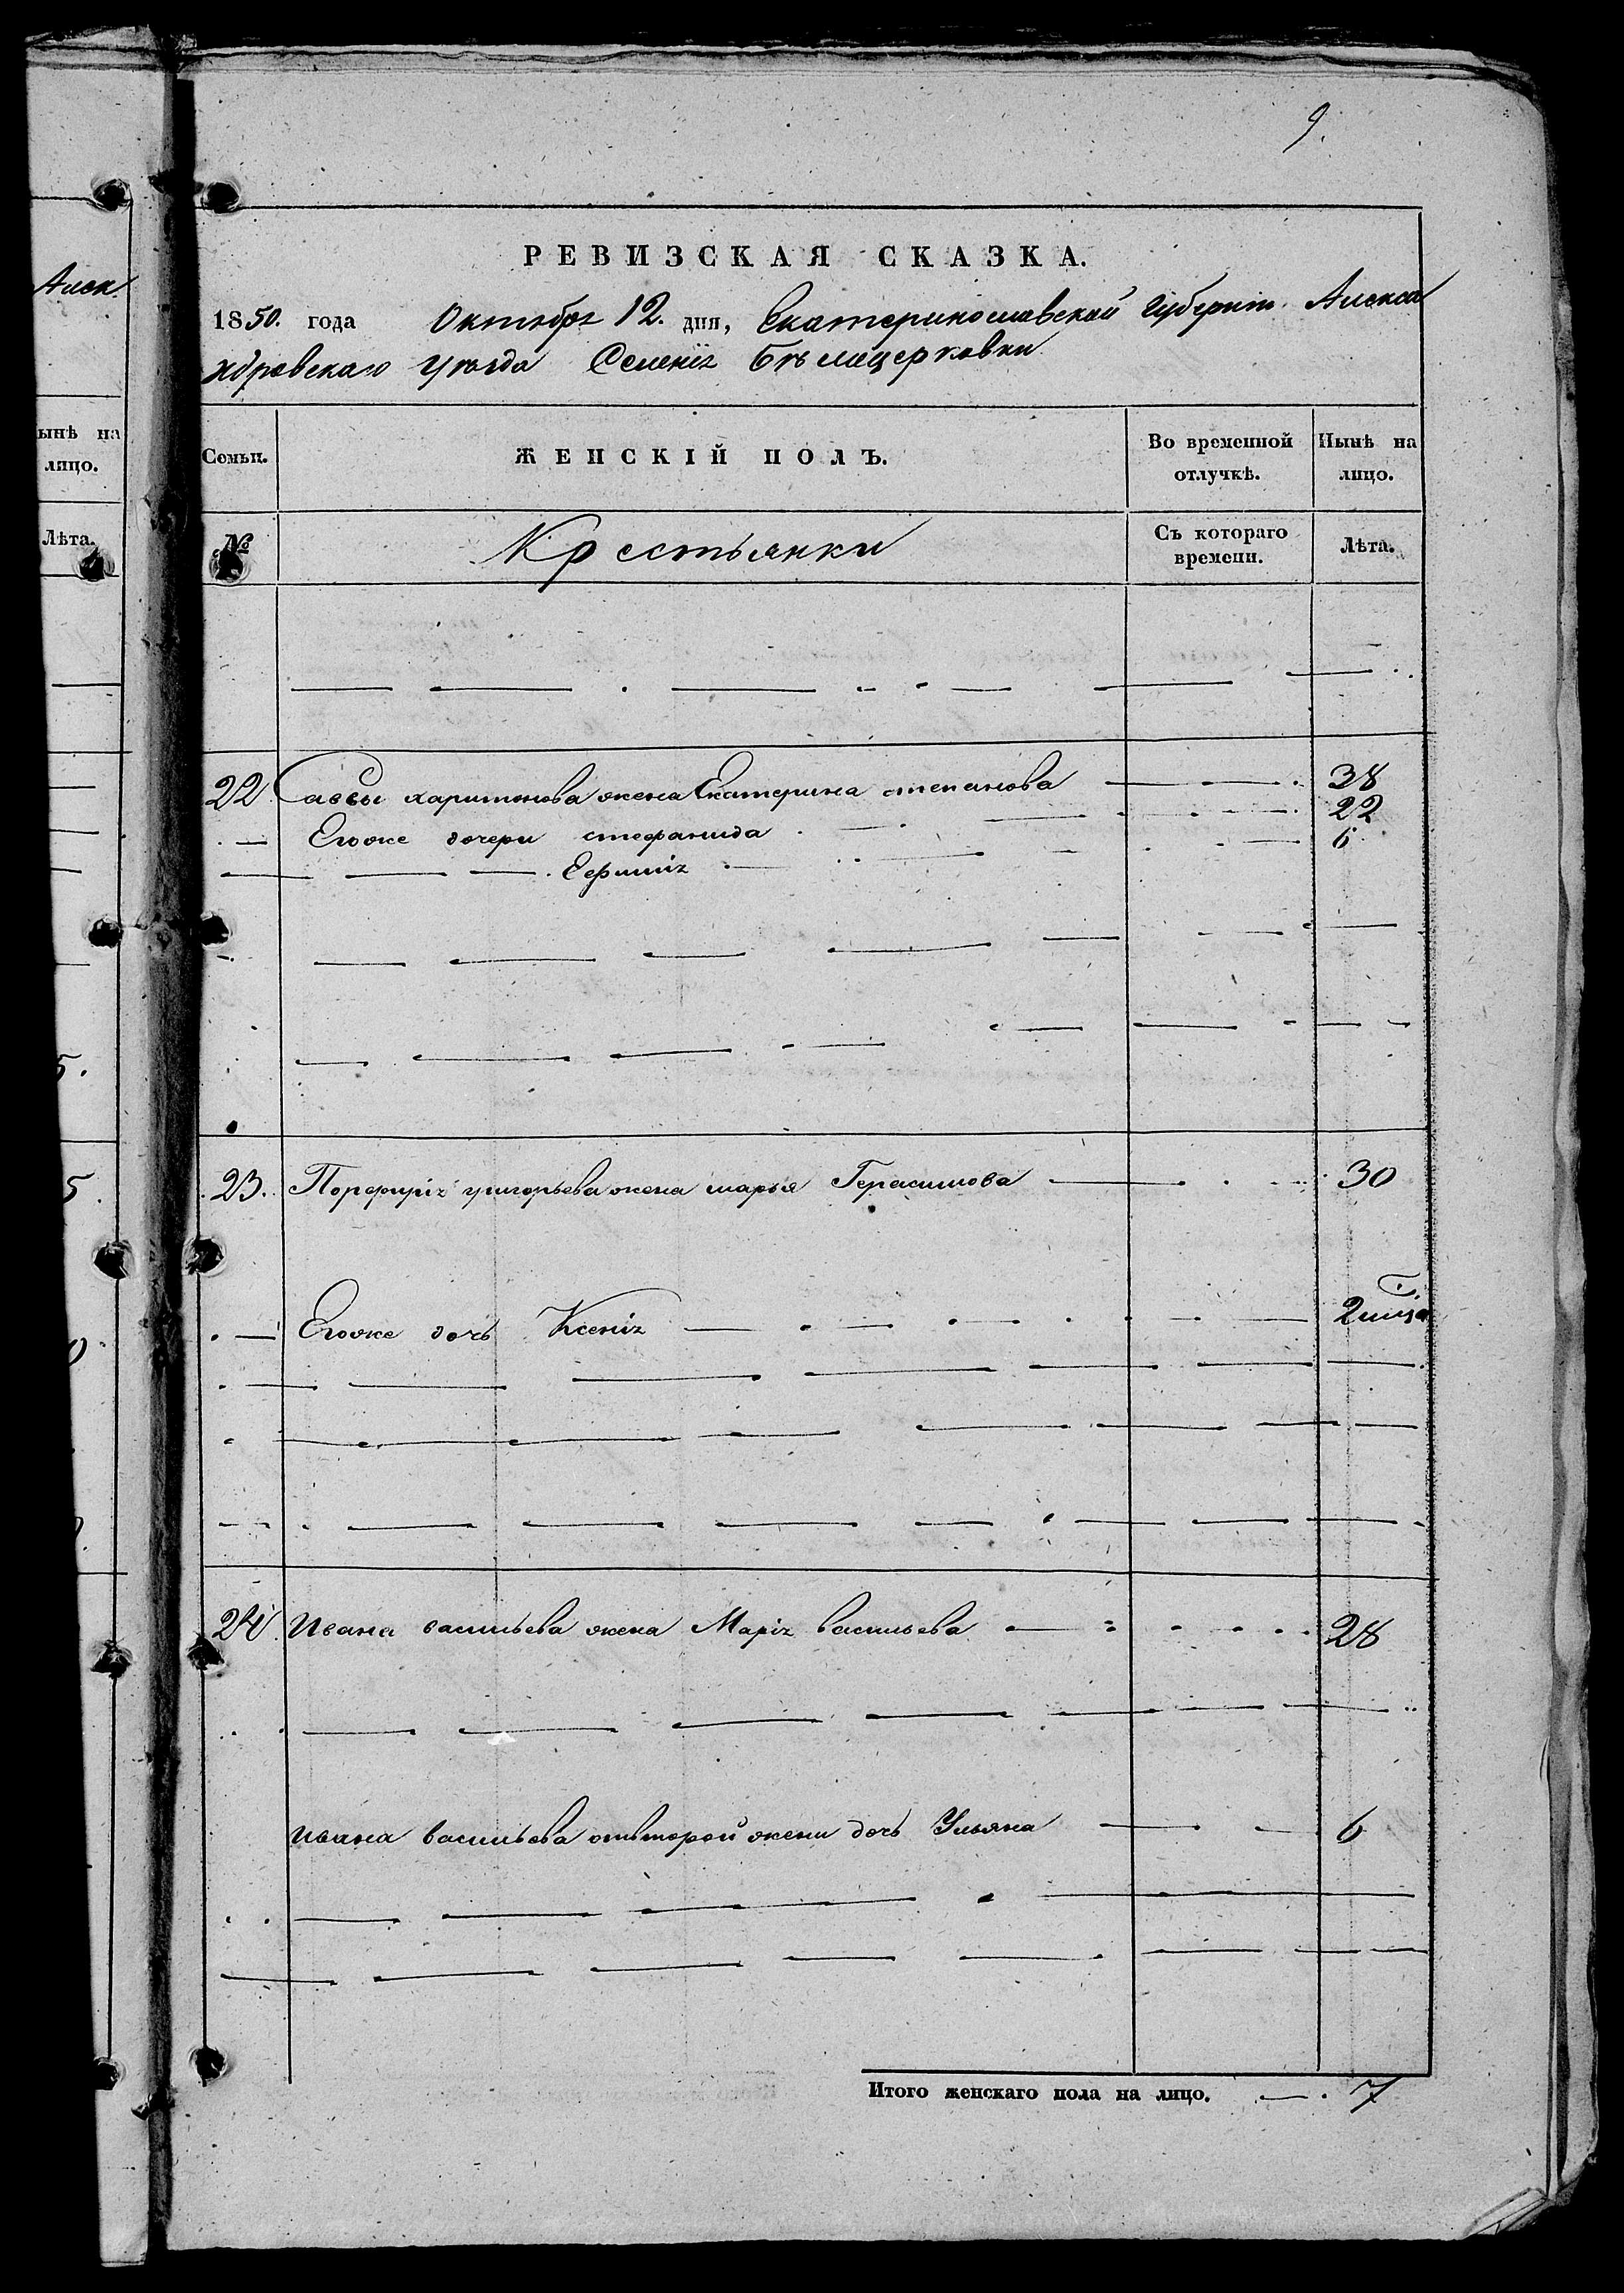 9.
Алек
РЕВИЗСКАЯ СКАЗКА.
1850. года Октября 12. дня, Екатеринославской Губернии Алекса
ндровскаго Уѣзда Селенія Бѣлецерковки
ынѣ на
лицо.
Лѣта.
Семьи.
ЖЕНСКІЙ ПОЛЪ.
Во временной
отлучкѣ.
Нынѣ на
лицо.
№
Крестьянки
Съ котораго
времени.
Лѣта.
22 Саввы харитонова жена Екатерина степанова 38
Егоже дочери стефанида 22
6
23. Порфирія григорьева жена марья Герасимова 30
Егоже дочь Ксенія 2
24 Ивана васильева жена Марія васильева 28
ивана васильева отвторой жени дочь Ульяна 6
Итого женскаго пола на лицо. 7